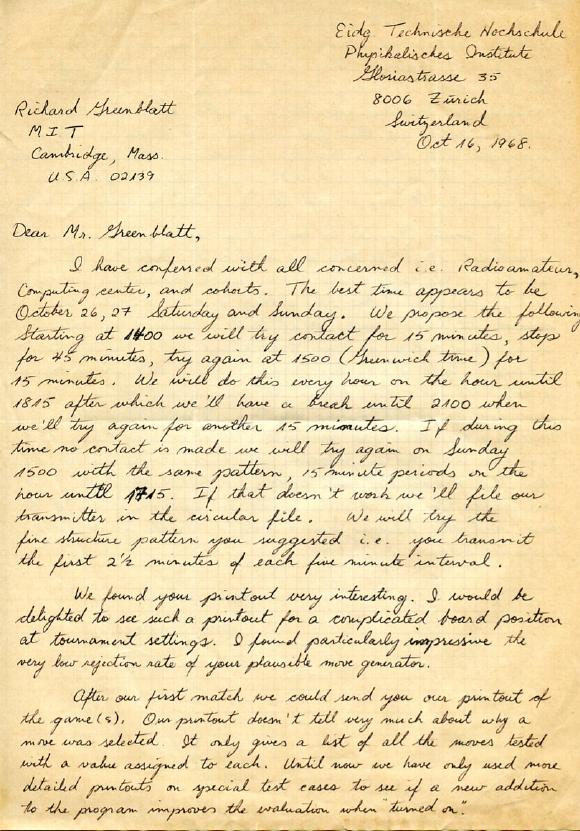 Eidg. Technische Hochschule
Physikalisches Institute
Gloriastrasse 35
8006 Zürich
Switzerland
Oct 16, 1968.
Richard Greenblatt
M I T
Cambridge, Mass.
U.S.A. 02139
Dear Mr. Greenblatt,
I have conferred with all concerned i.e. Radioamateur,
Computing center, and cohorts. The best time appears to be
October 26, 27 Saturday and Sunday. We propose the following
Starting at 1400 we will try contact for 15 minutes, stop
for 45 minutes, try again at 1500 (Greenwich time) for
15 minutes. We will do this every hour on the hour until
1815 after which we'll have a break until 2100 when
we'll try again for another 15 minutes. If during this
time no contact is made we will try again on Sunday
1500 with the same pattern, 15 minute periods on the
hour until 1715. If that doesn't work we'll file our
transmitter in the circular file. We will try the
fine structure pattern you suggested i.e. you transmit
the first 2½ minutes of each five minute interval.
We found your printout very interesting. I would be
delighted to see such a printout for a complicated board position
at tournament settings. I found particularly impressive the
very low rejection rate of your plausible move generator.
After our first match we could send you our printout of
the game(s). Our printout doesn't tell very much about why a
move was selected. It only gives a list of all the moves tested
with a value assigned to each. Until now we have only used more
detailed printouts on special test cases to see if a new addition
to the program improves the evaluation when "turned on".